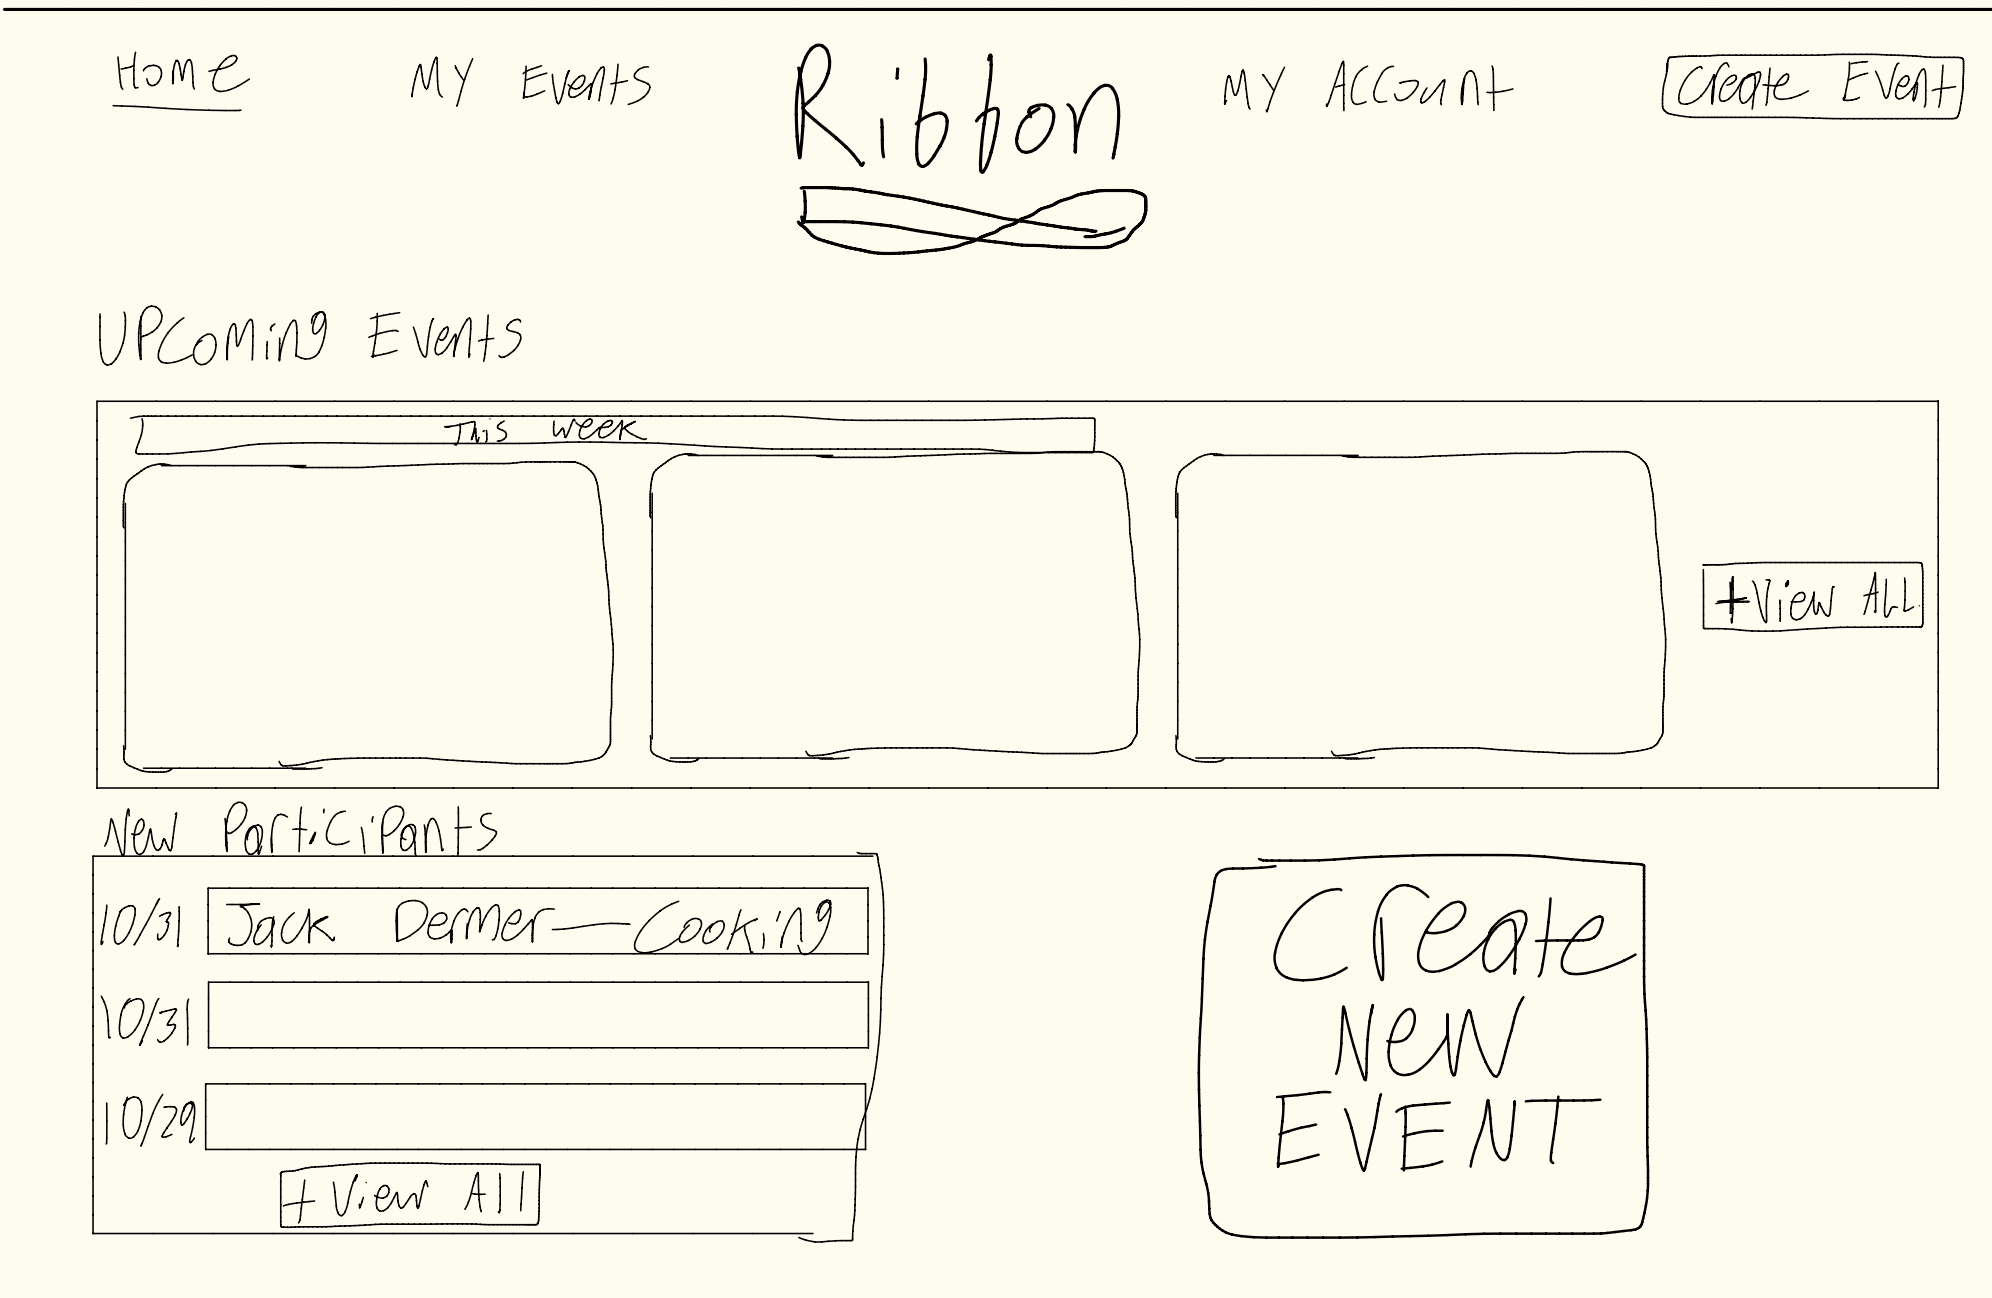 Home My Events Ribbon My Account Create Event
Upcoming Events
This week
+View All
New Participants
10/31 Jack Dermer—Cooking
10/31
10/29
+View All
Create
New
EVENT